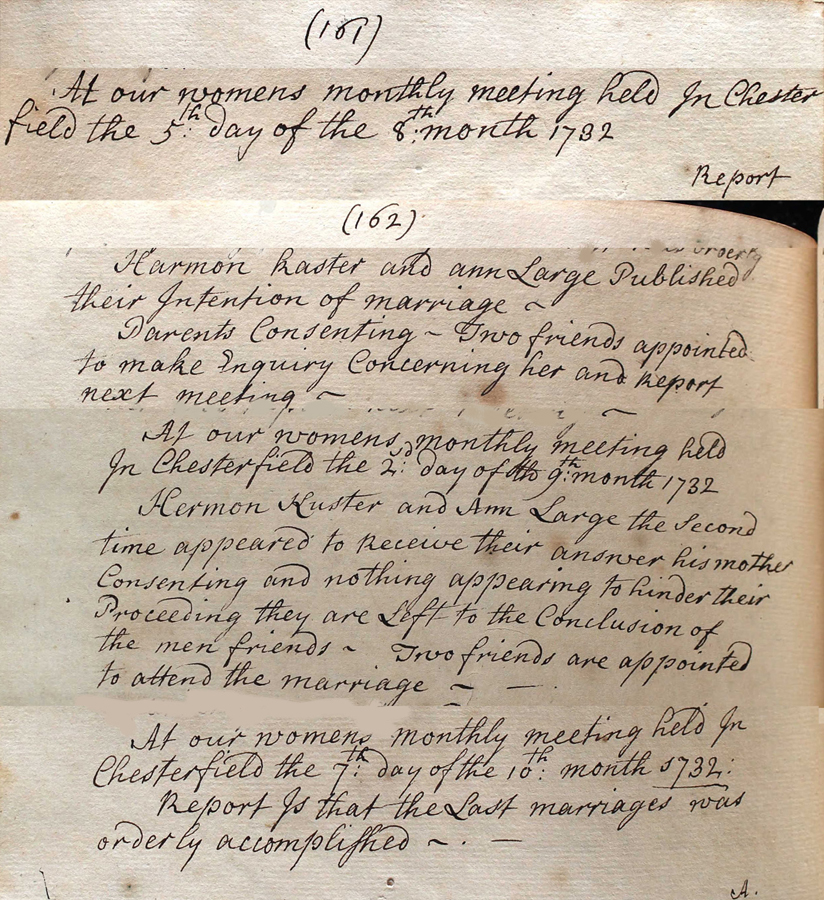 (161)
At our womens monthly meeting held In Chester
field the 5th: day of the 8th: month 1732
Report
(162)
orderly
Harmon Kaster and ann Large Published
their Intention of marriage ~
Parents Consenting ~ Two friends appointed
to make Inquiry Concerning her and Report
next meeting ~
At our womens monthly meeting held
In Chesterfield the 2d: day of th 9th: month 1732
Hermon Kuster and Ann Large the Second
time appeared to Receive their answer his mother
Consenting and nothing appearing to hinder their
Proceeding they are Left to the Conclusion of
the men friends ~ Two friends are appointed
to attend the marriage ~ —
At our womens monthly meeting held In
Chesterfield the 7th: day of the 10th: month 1732:
Report Is that the Last marriages was
orderly accomplished ~ . —
A.